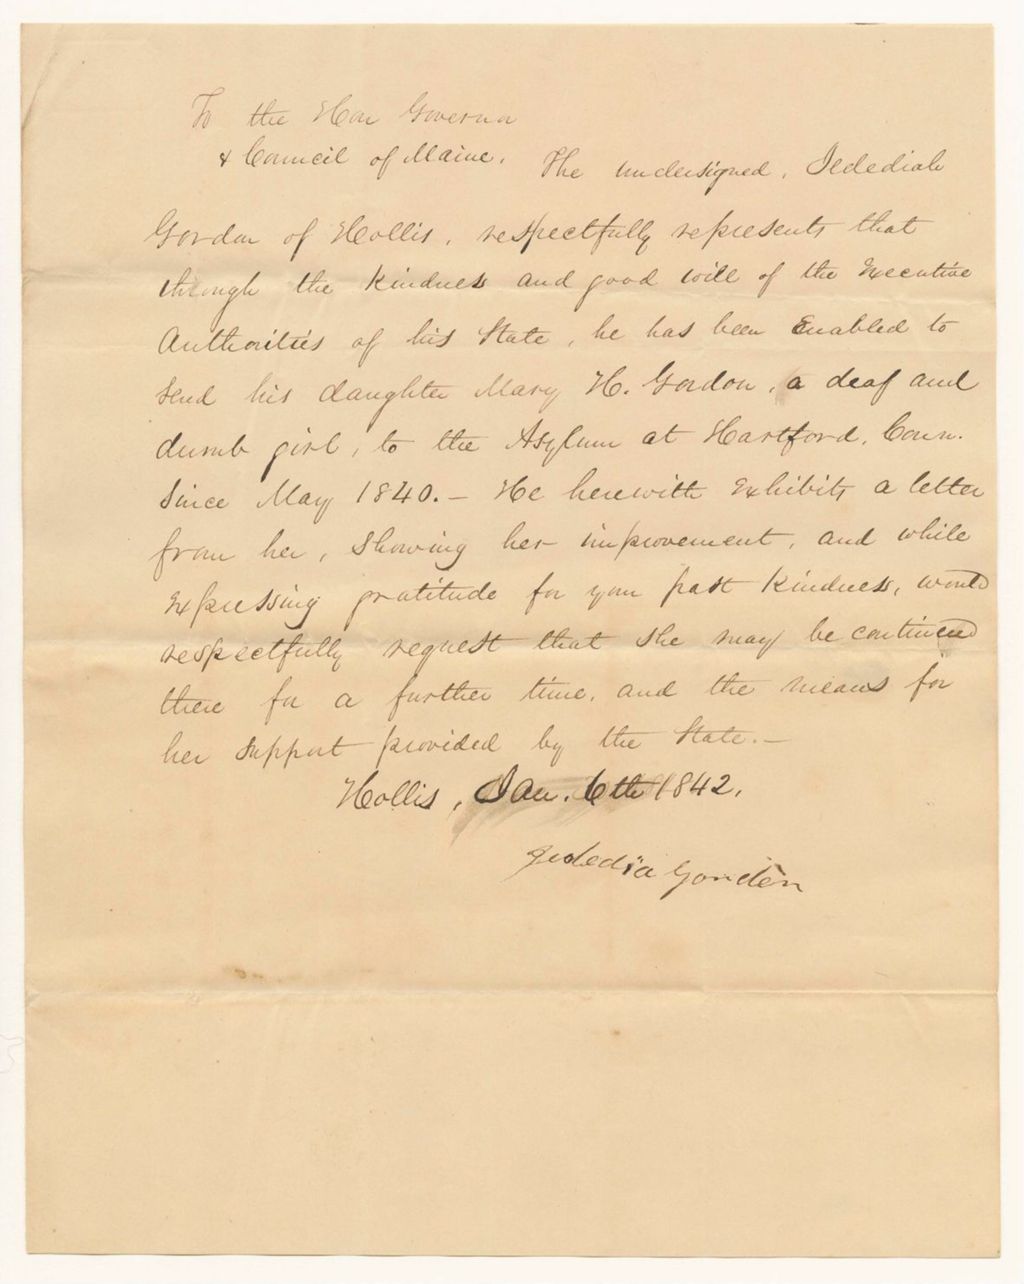 To the Hon Governor
& Council of Maine.
The undersigned, Jedediah
Gordon of Hollis, respectfully represents that
through the kindness and good will of the Executive
Authorities of his State, he has been Enabled to
send his daughter Mary H. Gordon, a deaf and
dumb girl, to the Asylum at Hartford, Conn.
since May 1840. – He herewith Exhibits a letter
from her, showing her improvement, and while
Expressing gratitude for your past kindness, would
respectfully request that she may be continued
there for a further time, and the means for
her support provided by the State. –
Hollis, Jan. 6th 1842.
Jedediah Gorden